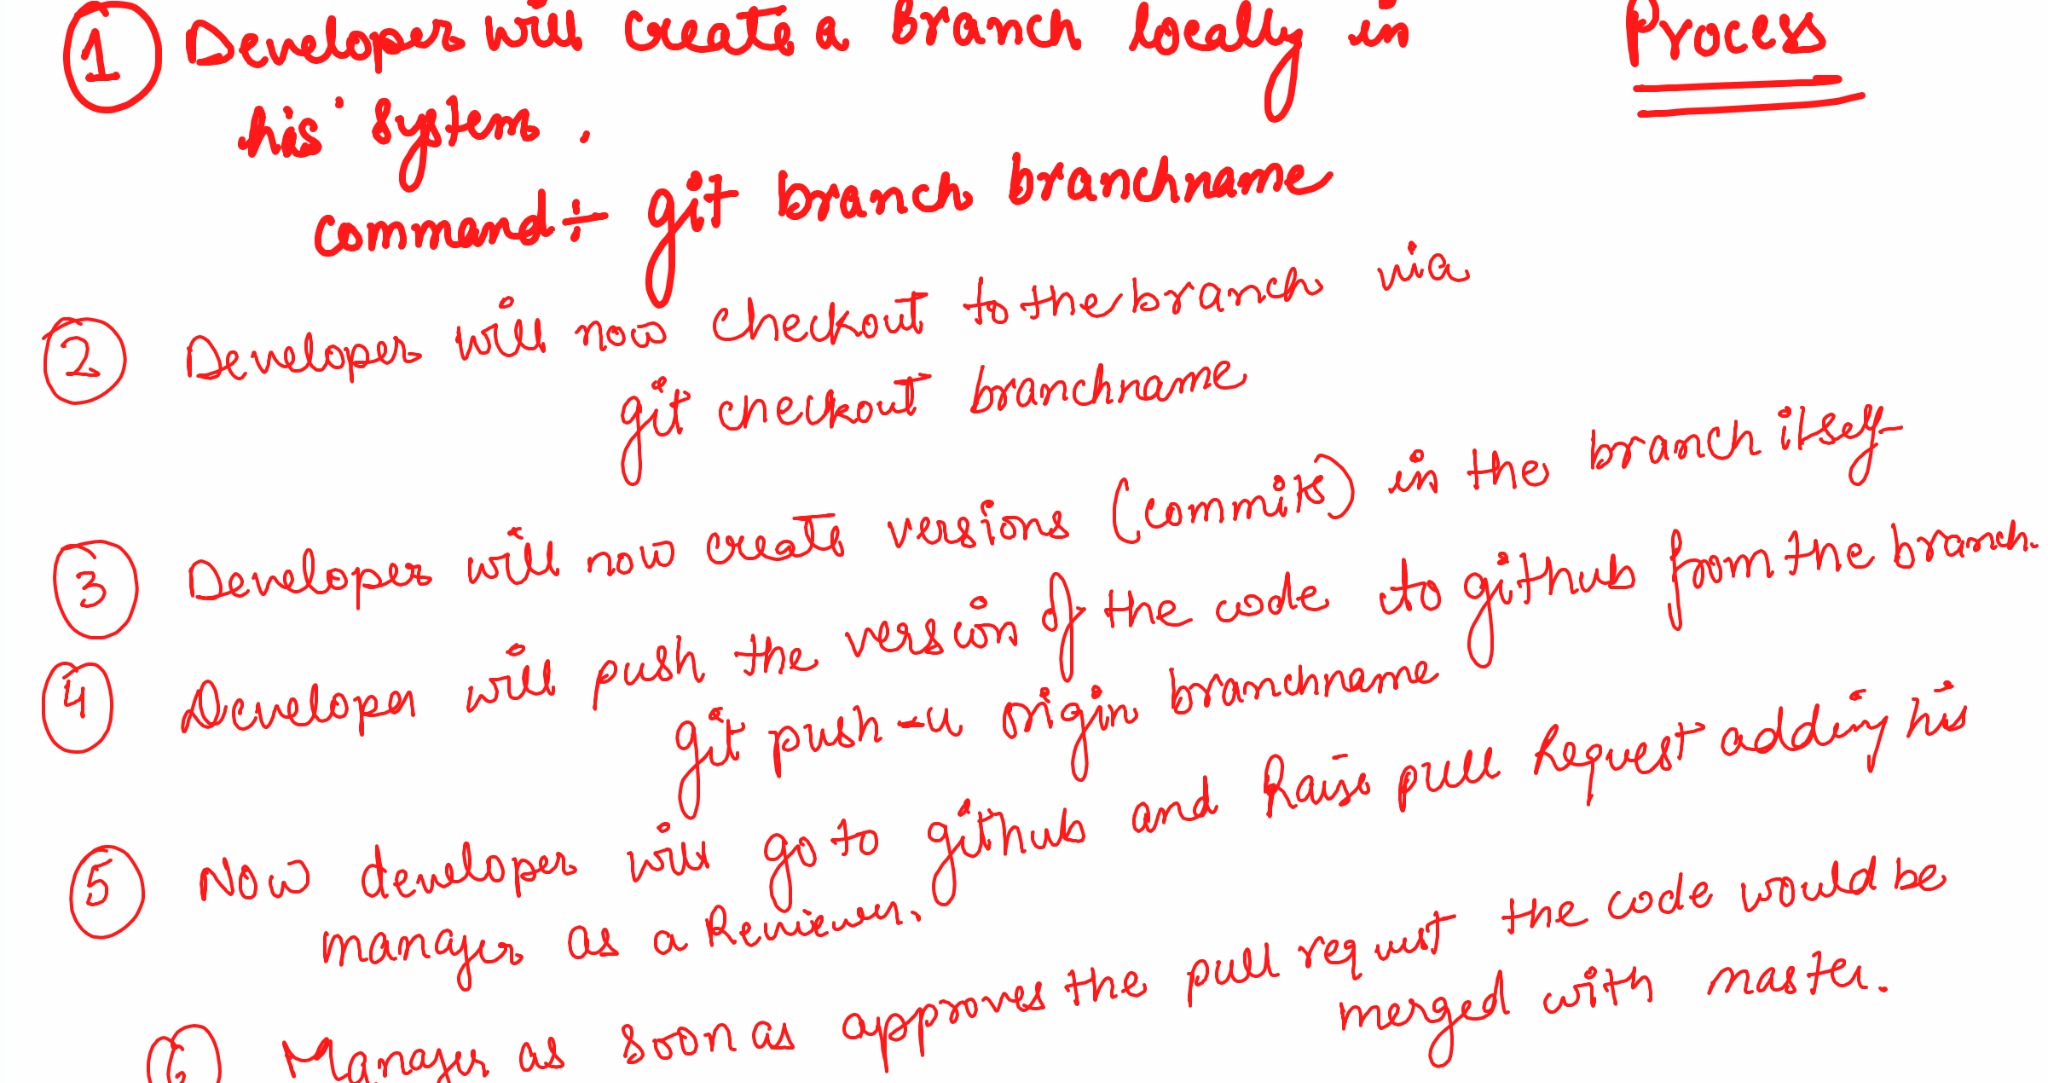 Process
① Developer will create a branch locally in
his system.
command:- git branch branchname
② Developer will now checkout to the branch via
git checkout branchname
③ Developer will now create versions (commits) in the branch itself
④ Developer will push the version of the code to github from the branch.
git push -u origin branchname
⑤ Now developer will go to github and Raise pull Request adding his
manager as a Reviewer.
⑥ Manager as soon as approves the pull request the code would be
merged with master.